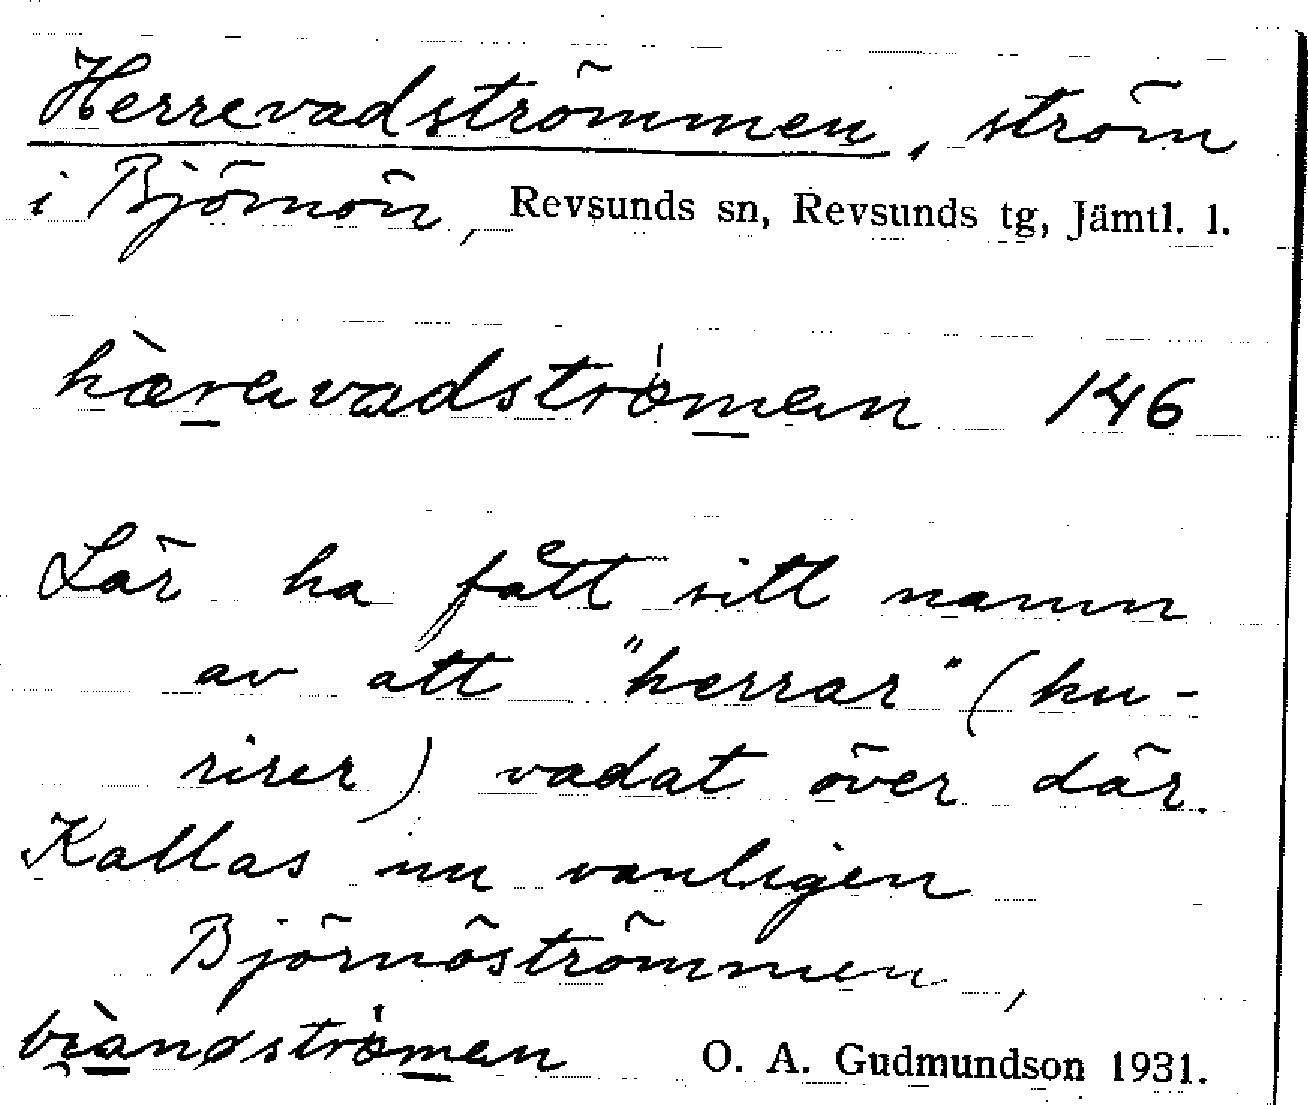 Herrevadströmmen, ström
i Björnön, Revsunds sn, Revsunds tg, Jämtl. l.
hæ̀ravadströ̍man 146
Lär ha fått sitt namn
av att "herrar" (ku-
rirer) vadat över där.
Kallas nu vanligen
Björnöströmmen,
O. A. Gudmundson 1931.